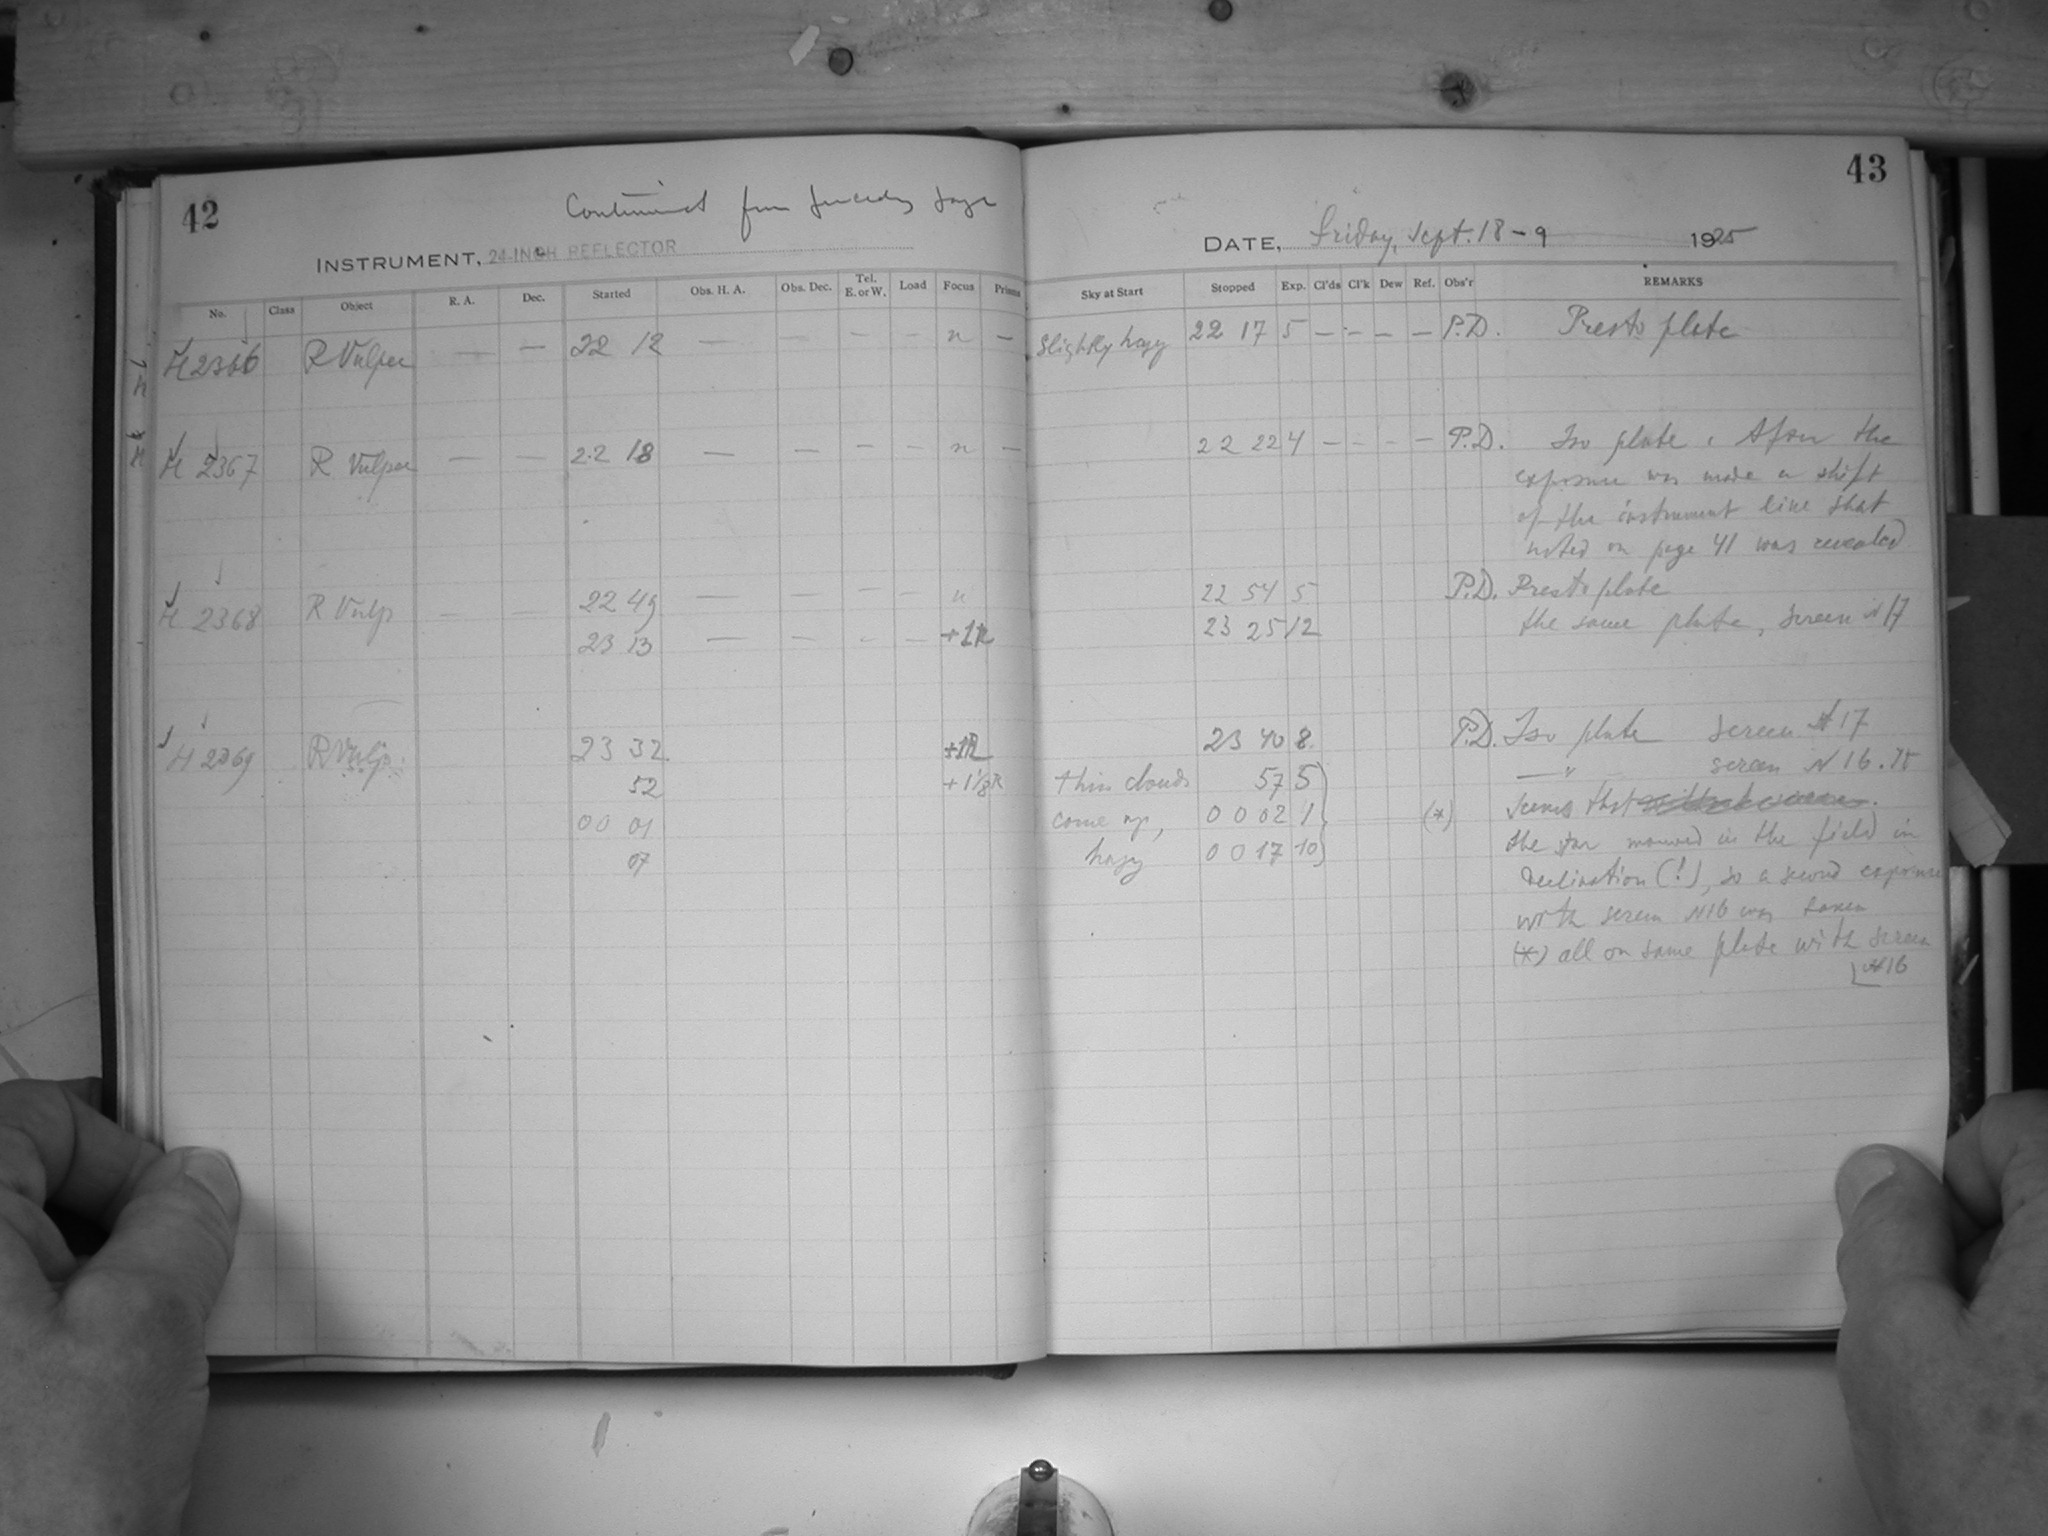 42
Continued from preceding page
INSTRUMENT, 24-INCH REFLECTOR
No. Class Object R. A. Dec. Started Obs. H. A. Obs. Dec. Tel. E. or W. Load Focus Prisms
H 2366 R Vulpec — — 22 12 — — — — n —
H 2367 R Vulpec — — 22 18 — — — — n —
H 2368 R Vulp — — 22 49 — — — — n
23 13 — — — — +1R
H 2369 R Vulp. 23 32 +1R
52 +1 1/2 R
00 01
07
43
DATE, Friday, Sept. 18-9 1925
Sky at Start Stopped Exp. Cl'ds Cl'k Dew Ref. Obs'r REMARKS
Slightly hazy 22 17 5 — — — — P.D. Presto plate
22 22 4 — — — — P.D. Iso plate. After the
exposure was made a shift
of the instrument like that
noted on page 41 was revealed
22 54 5 P.D. Presto plate
23 25 12 the same plate, screen N 17
23 40 8 P.D. Iso plate screen N 17
thin clouds 57 5 — " — screen N 16.
come up, 00 02 1 (*) seems that
hazy 00 17 10 the star mouved in the field in
declination (!), so a second exposure
with screen N16 was taken
(*) all on same plate with screen
N16